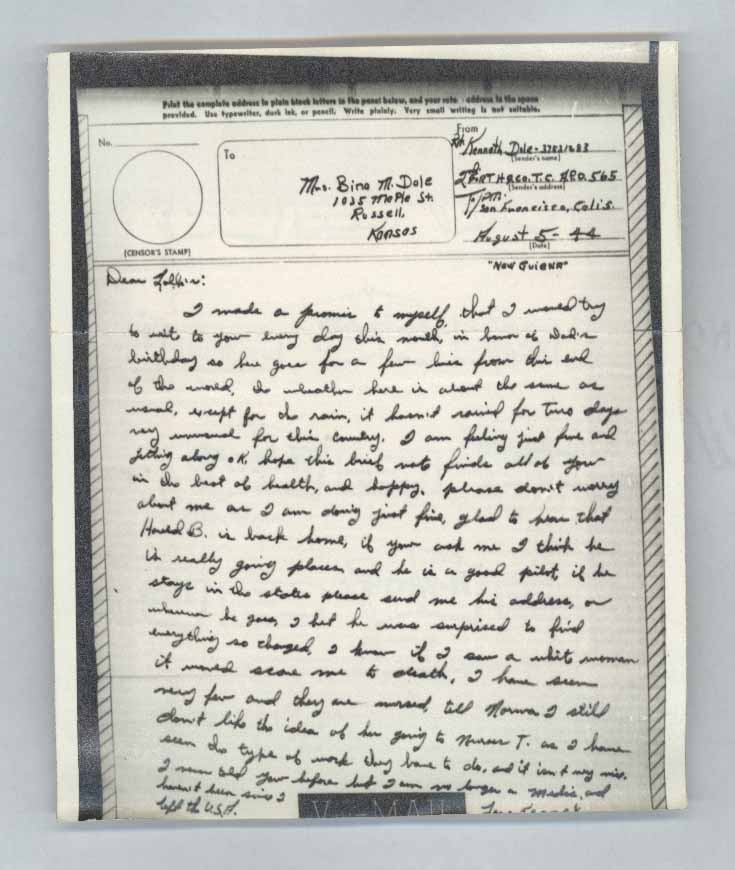 Print the complete address in plain block letters in the panel below, and your return address in the space
provided. Use typewriter, dark ink, or pencil. Write plainly. Very small writing is not suitable.
No.
From
To
Kenneth Dole-
(Sender's name)
Mrs. Bina M. Dole
A.P.O. 565
(Sender's address)
1035 Maple St.
San Francisco, Calif.
Russell,
Kansas
August 5-44
(Date)
(CENSOR'S STAMP)
"New Guiena"
Dear
I made a promis to myself, that I would try
to writ to you every day this month, in honor of Dad's
birthday so here goes for a few lins from this end
of the world, the wheather here is about the same as
usual, except for the rain, it hasn't rained for two days
very unusual for this country. I am feeling just fine and
getting along OK, hope this brief not finds all of your
in the best of health, and happy, please don't worry
about me as I am doing just fine, glad to hear that
B. is back home, if your ask me I think he
is really going places and he is a good pilot, if he
stays in the states please send me his address, or
wherever he goes, I bet he was surprised to find
everything so changed, I know if I saw a whit woman
it would scare me to death, I have seen
very few and they are nurses, tell Norma I still
don't like the idea of her going to Nurses T. as I have
seen the type of work they have to do, and it isn't very nice.
I never told your before but I am no longer a medic, and
haven't been since I
left the U.S.A.
V···—MAIL